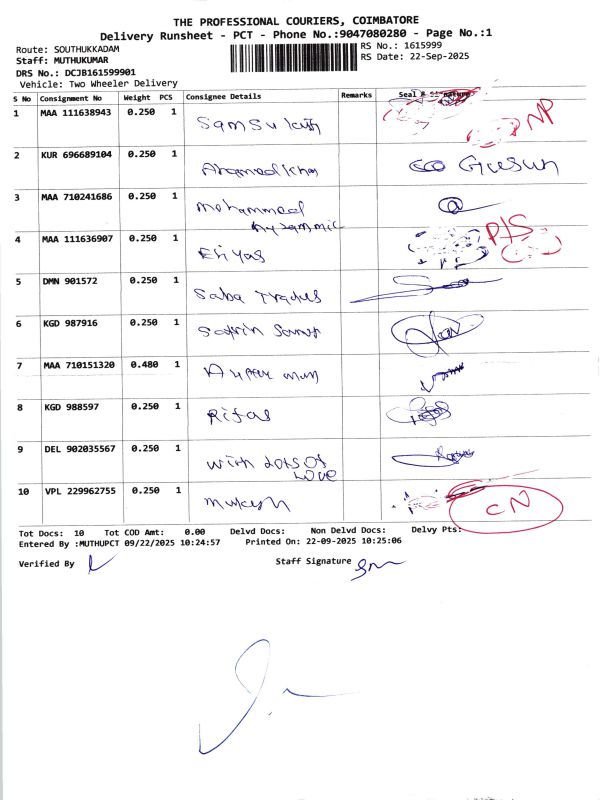 THE PROFESSIONAL COURIERS, COIMBATORE
Delivery Runsheet - PCT - Phone No.:9047080280 - Page No.:1
Route: SOUTHUKKADAM
RS No.: 1615999
Staff: MUTHUKUMAR
RS Date: 22-Sep-2025
DRS No.: DCJB161599901
Vehicle: Two Wheeler Delivery
S No Consignment No Weight PCS Consignee Details Remarks Seal & Signature
1 MAA 111638943 0.250 1 NP
2 KUR 696689104 0.250 1
3 MAA 710241686 0.250 1 Mohammed
4 MAA 111636907 0.250 1 Eliyas P/S
5 DMN 901572 0.250 1 Saba Traders
6 KGD 987916 0.250 1
7 MAA 710151320 0.480 1
8 KGD 988597 0.250 1 Rifas
9 DEL 902035567 0.250 1 With Lots Of
Love
10 VPL 229962755 0.250 1 Mukesh CN
Tot Docs: 10 Tot COD Amt: 0.00 Delvd Docs: Non Delvd Docs: Delvy Pts:
Entered By :MUTHUPCT 09/22/2025 10:24:57 Printed On: 22-09-2025 10:25:06
Verified By Staff Signature